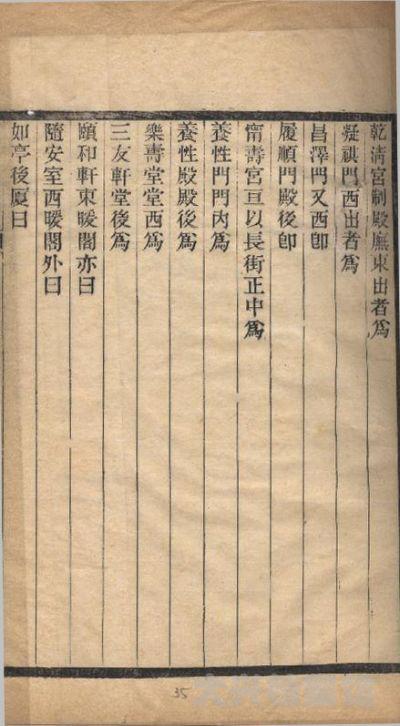 乾清宮制殿廡東出者爲
凝祺門西出者爲
昌澤門又西卽
履順門殿後卽
甯壽宮亘以長街正中爲
養性門門内爲
養性殿殿後爲
樂壽堂堂西爲
三友軒堂後爲
頤和軒東暖閣亦曰
隨安室西暖閣外曰
如亭後廈曰
35